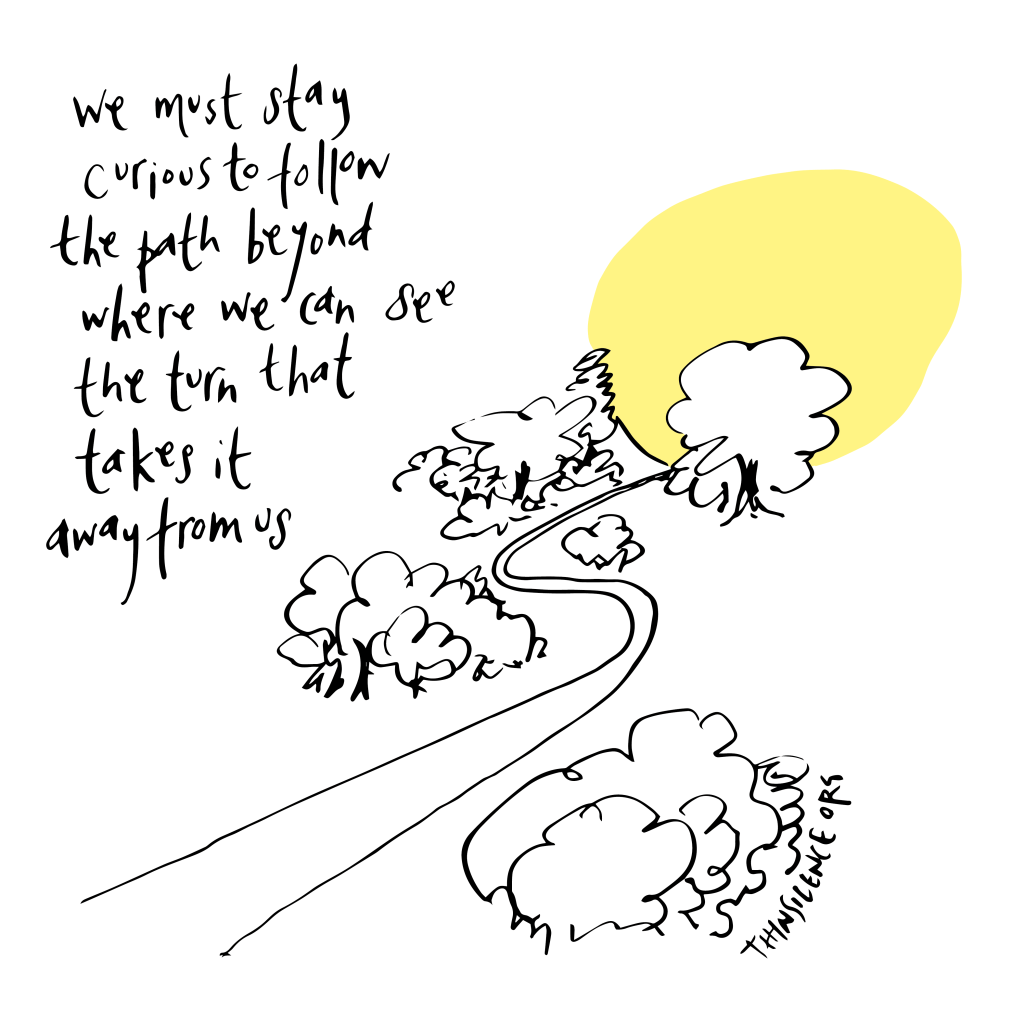 we must stay
curious to follow
the path beyond
where we can see
the turn that
takes it
away from us
THINSILENCE ORG